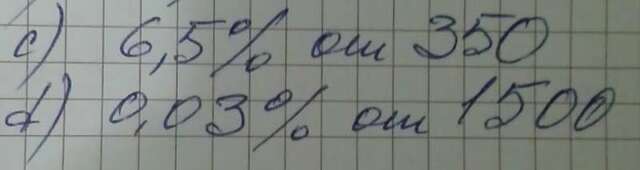 c) 6,5% от 350
d) 0,03% от 1500